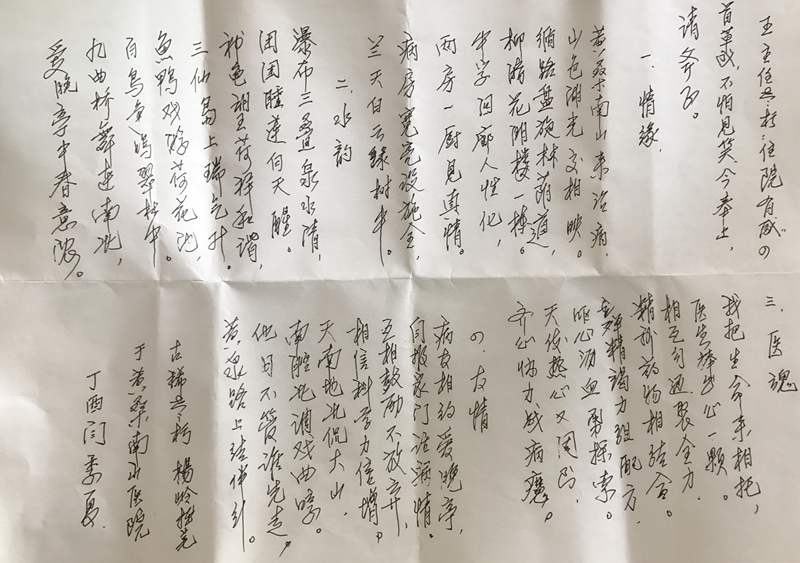 王主任号称：住院有感四
首草成，不怕见笑今奉上，
请斧正。
一、情缘
黄桑南山来治病，
山色湖光交相映。
循路盘旋林荫道，
柳暗花明楼一栋。
中学回廊人性化，
两房一厨见真情。
病房宽亮设施全，
兰天白云绿树中。
二、水韵
瀑布三叠泉水清，
团团睡莲向天醒。
和谐，
三仙岛上瑞气升。
鱼鸭戏游荷花池，
百鸟争鸣翠林中。
九曲桥廊连南北，
爱晚亭中春意浓。
三、医魂
我把生命来相托，
医生捧出心一颗。
相互沟通聚全力，
精神药物相结合。
精竭力组配方，
呕心沥血勇探索。
天使热心又周到，
齐心协力战病魔。
四、友情
病友相约爱晚亭，
自报家门话病情。
互相鼓励不放弃，
相信科学力倍增。
天南地北侃大山，
南腔北调戏曲哼。
他日不管谁先走，
黄泉路上结伴行。
古稀号称 杨
于黄桑南山医院
丁酉闰季夏